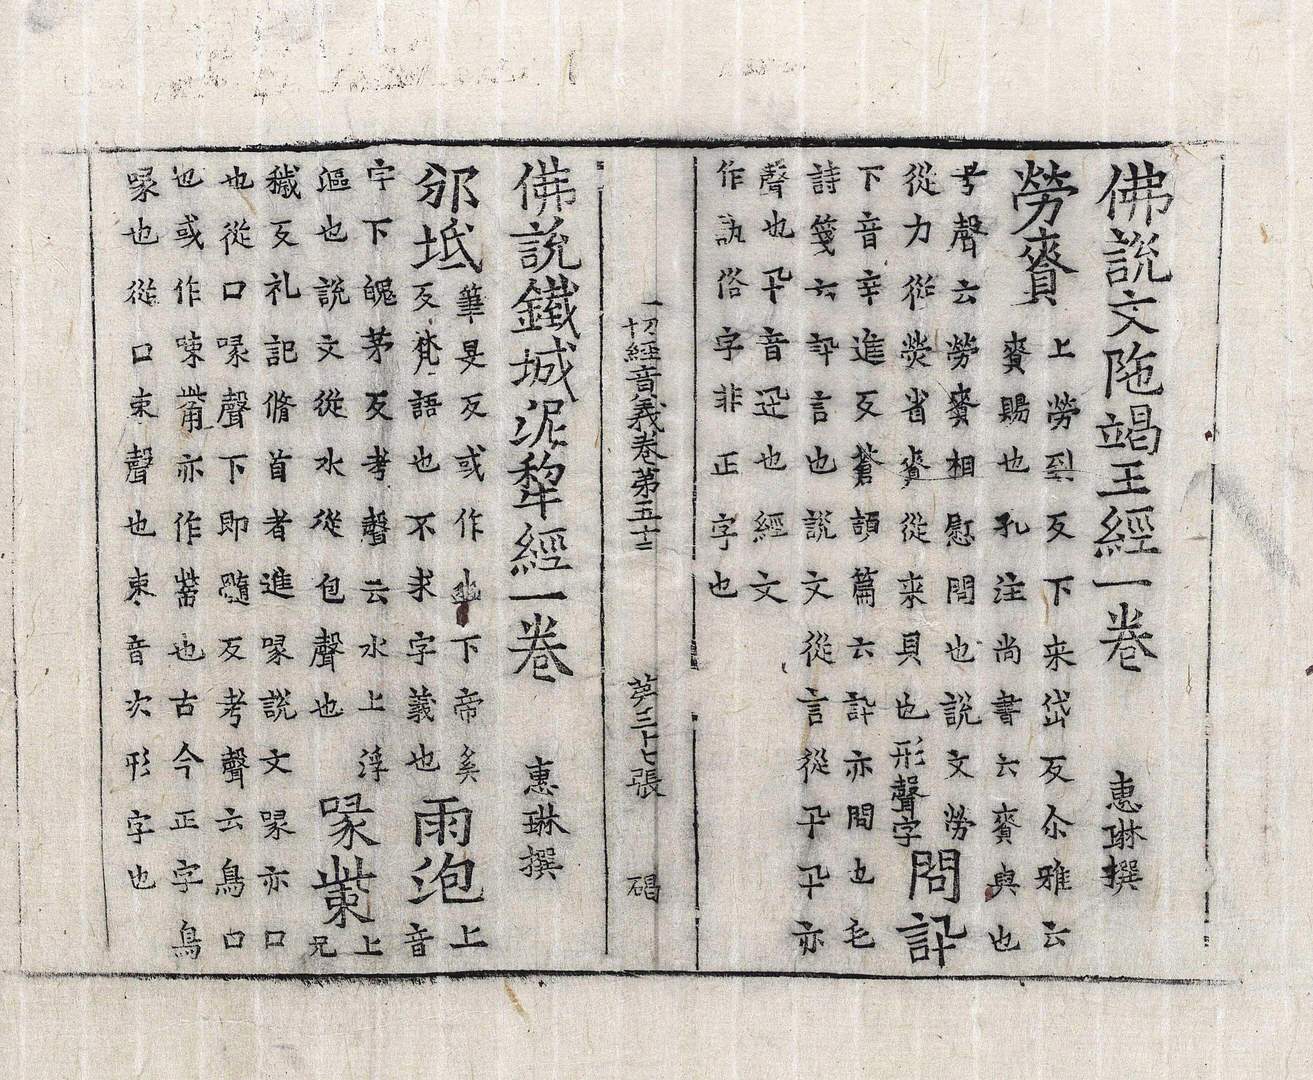 佛說文陁竭王經一卷　惠琳撰
勞賚　上勞到反下来岱反尒雅云
賚賜也孔注尚書云賚與也
聲云勞賚相慰問也說文勞
從力從熒省賚從来貝也形聲字　問訊
下音辛進反蒼頡篇云訊亦問也毛
詩箋云訊言也說文從言從卂卂亦
聲也卂音迅也經文
作訙俗字非正字也
一切經音義卷第五十三　夢三十七張　碣
佛說鐵城泥犂經一卷　惠琳撰
邠坻　筆旻反或作豳下帝奚
反梵語也不求字義也　雨泡　上音
字下皅茅反考聲云水上浮
漚也說文從水從包聲也　㖾㭰　上兄
穢反礼記脩首者進㖾說文㖾亦口
也從口㖾聲下即髓反考聲云鳥口
也或作㖩㭰亦作觜也古今正字鳥
㖾也從口朿聲也朿音次形字也